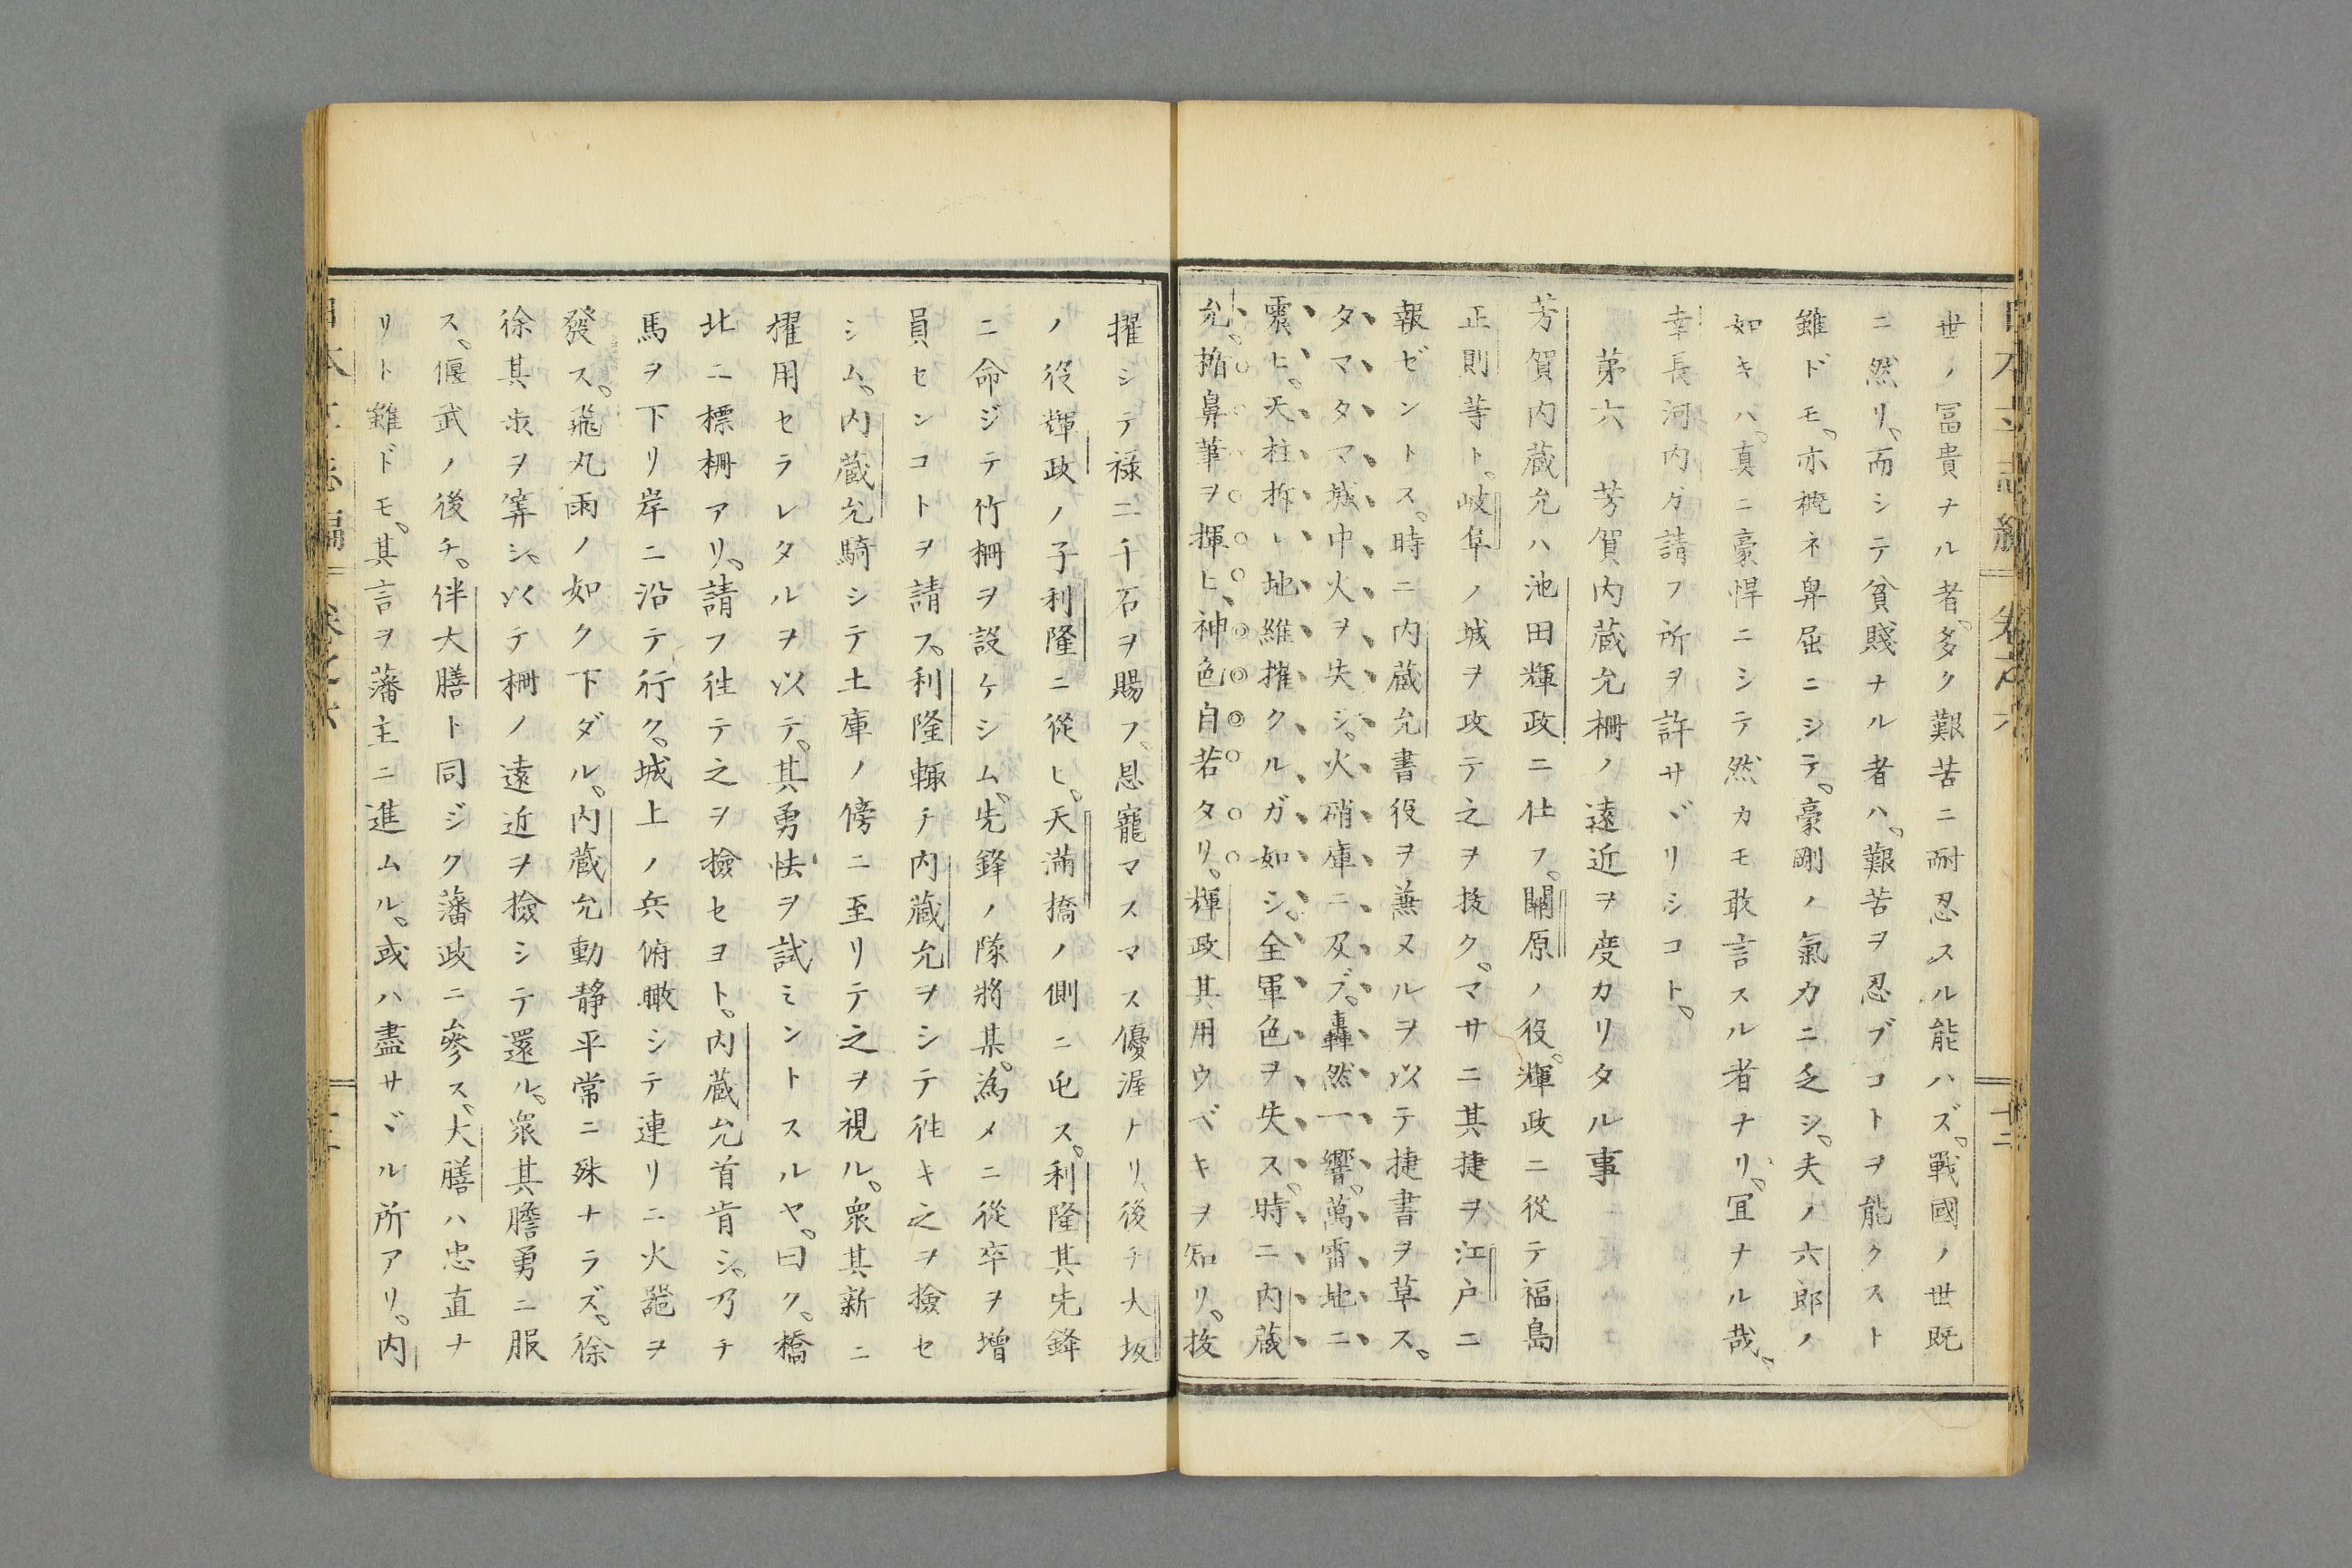 世ノ冨貴ナル者、多ク艱苦ニ耐忍スル能ハズ。戰國ノ世既
ニ然リ、而シテ貧賤ナル者ハ、艱苦ヲ忍ブコトヲ能クスト
雖ドモ、亦概ネ卑屈ニシテ、豪剛ノ氣力ニ乏シ、夫ノ六郎ノ
如キハ、真ニ豪悍ニシテ然カモ敢言スル者ナリ、冝ナル哉、
幸長河内ガ請フ所ヲ許サヾリシコト。
苐六 芳賀内蔵允柵ノ遠近ヲ度カリタル事
芳賀内蔵允ハ池田輝政ニ仕フ。關原ノ役、輝政ニ從テ福島
正則等ト、岐阜ノ城ヲ攻テ之ヲ拔ク、マサニ其捷ヲ江戸ニ
報ゼントス、時ニ内蔵允書役ヲ兼ヌルヲ以テ捷書ヲ草ス。
タマタマ城中火ヲ失シ、火硝庫ニ及ブ。轟然一響、萬雷地ニ
震ヒ、天柱拆レ地維摧クルガ如シ、全軍色ヲ失ス、時ニ内蔵
允、搘鼻筆ヲ揮ヒ、神色自若タリ、輝政其用ウベキヲ知リ、抜
擢シテ禄二千石ヲ賜フ、恩寵マスマス優渥ナリ、後チ大坂
ノ役輝政ノ子利隆ニ從ヒ、天滿橋ノ側ニ屯ス。利隆其先鋒
ニ命ジテ竹柵ヲ設ケシム、先鋒ノ隊將某、為メニ從卒ヲ増
員センコトヲ請ス、利隆輙チ内蔵允ヲシテ徃キ之ヲ撿セ
シム、内蔵允騎シテ土庫ノ傍ニ至リテ之ヲ視ル。衆其新ニ
擢用セラレタルヲ以テ、其勇怯ヲ試ミントスルヤ、曰ク、橋
北ニ標柵アリ、請フ徃テ之ヲ撿セヨト。内蔵允首肯シ、乃チ
馬ヲ下リ岸ニ沿テ行ク、城上ノ兵俯瞰シテ連リニ火器ヲ
發ス。飛丸雨ノ如ク下ダル、内蔵允動静平常ニ殊ナラズ。徐
徐其歩ヲ筭シ、以テ柵ノ遠近ヲ撿シテ還ル。衆其膽勇ニ服
ス、偃武ノ後チ、伴大膳ト同ジク藩政ニ參ス、大膳ハ忠直ナ
リト雖ドモ、其言ヲ藩主ニ進ムル。或ハ盡サヾル所アリ。内